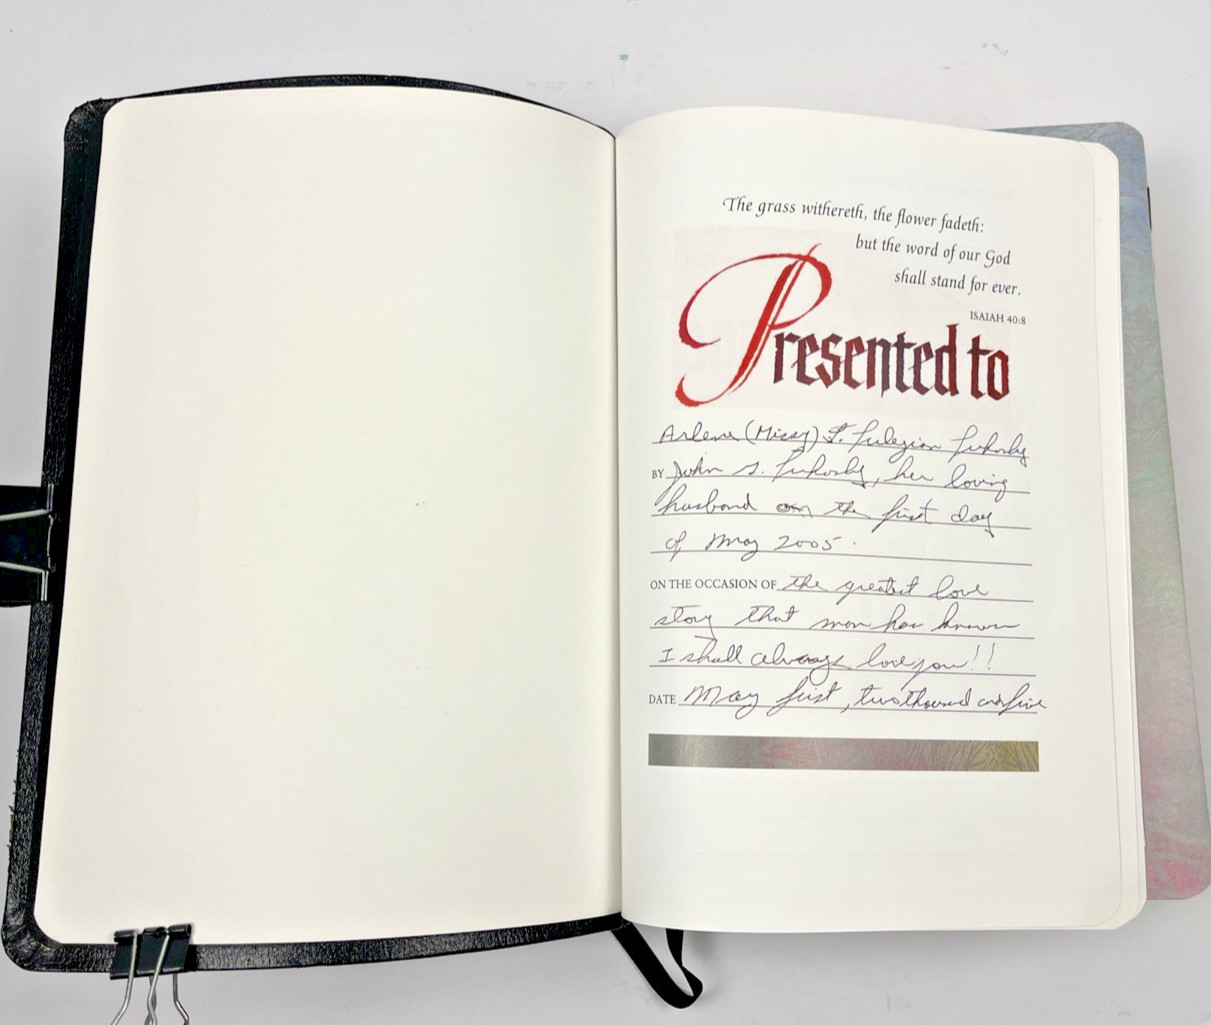 The grass withereth, the flower fadeth:
but the word of our God
shall stand for ever.
ISAIAH 40:8
Presented to
Arlene (Missy)
BY John S. her loving
husband on the first day
of May 2005.
ON THE OCCASION OF the greatest love
story that man has known
I shall always love you!!
DATE May first, two thousand and five